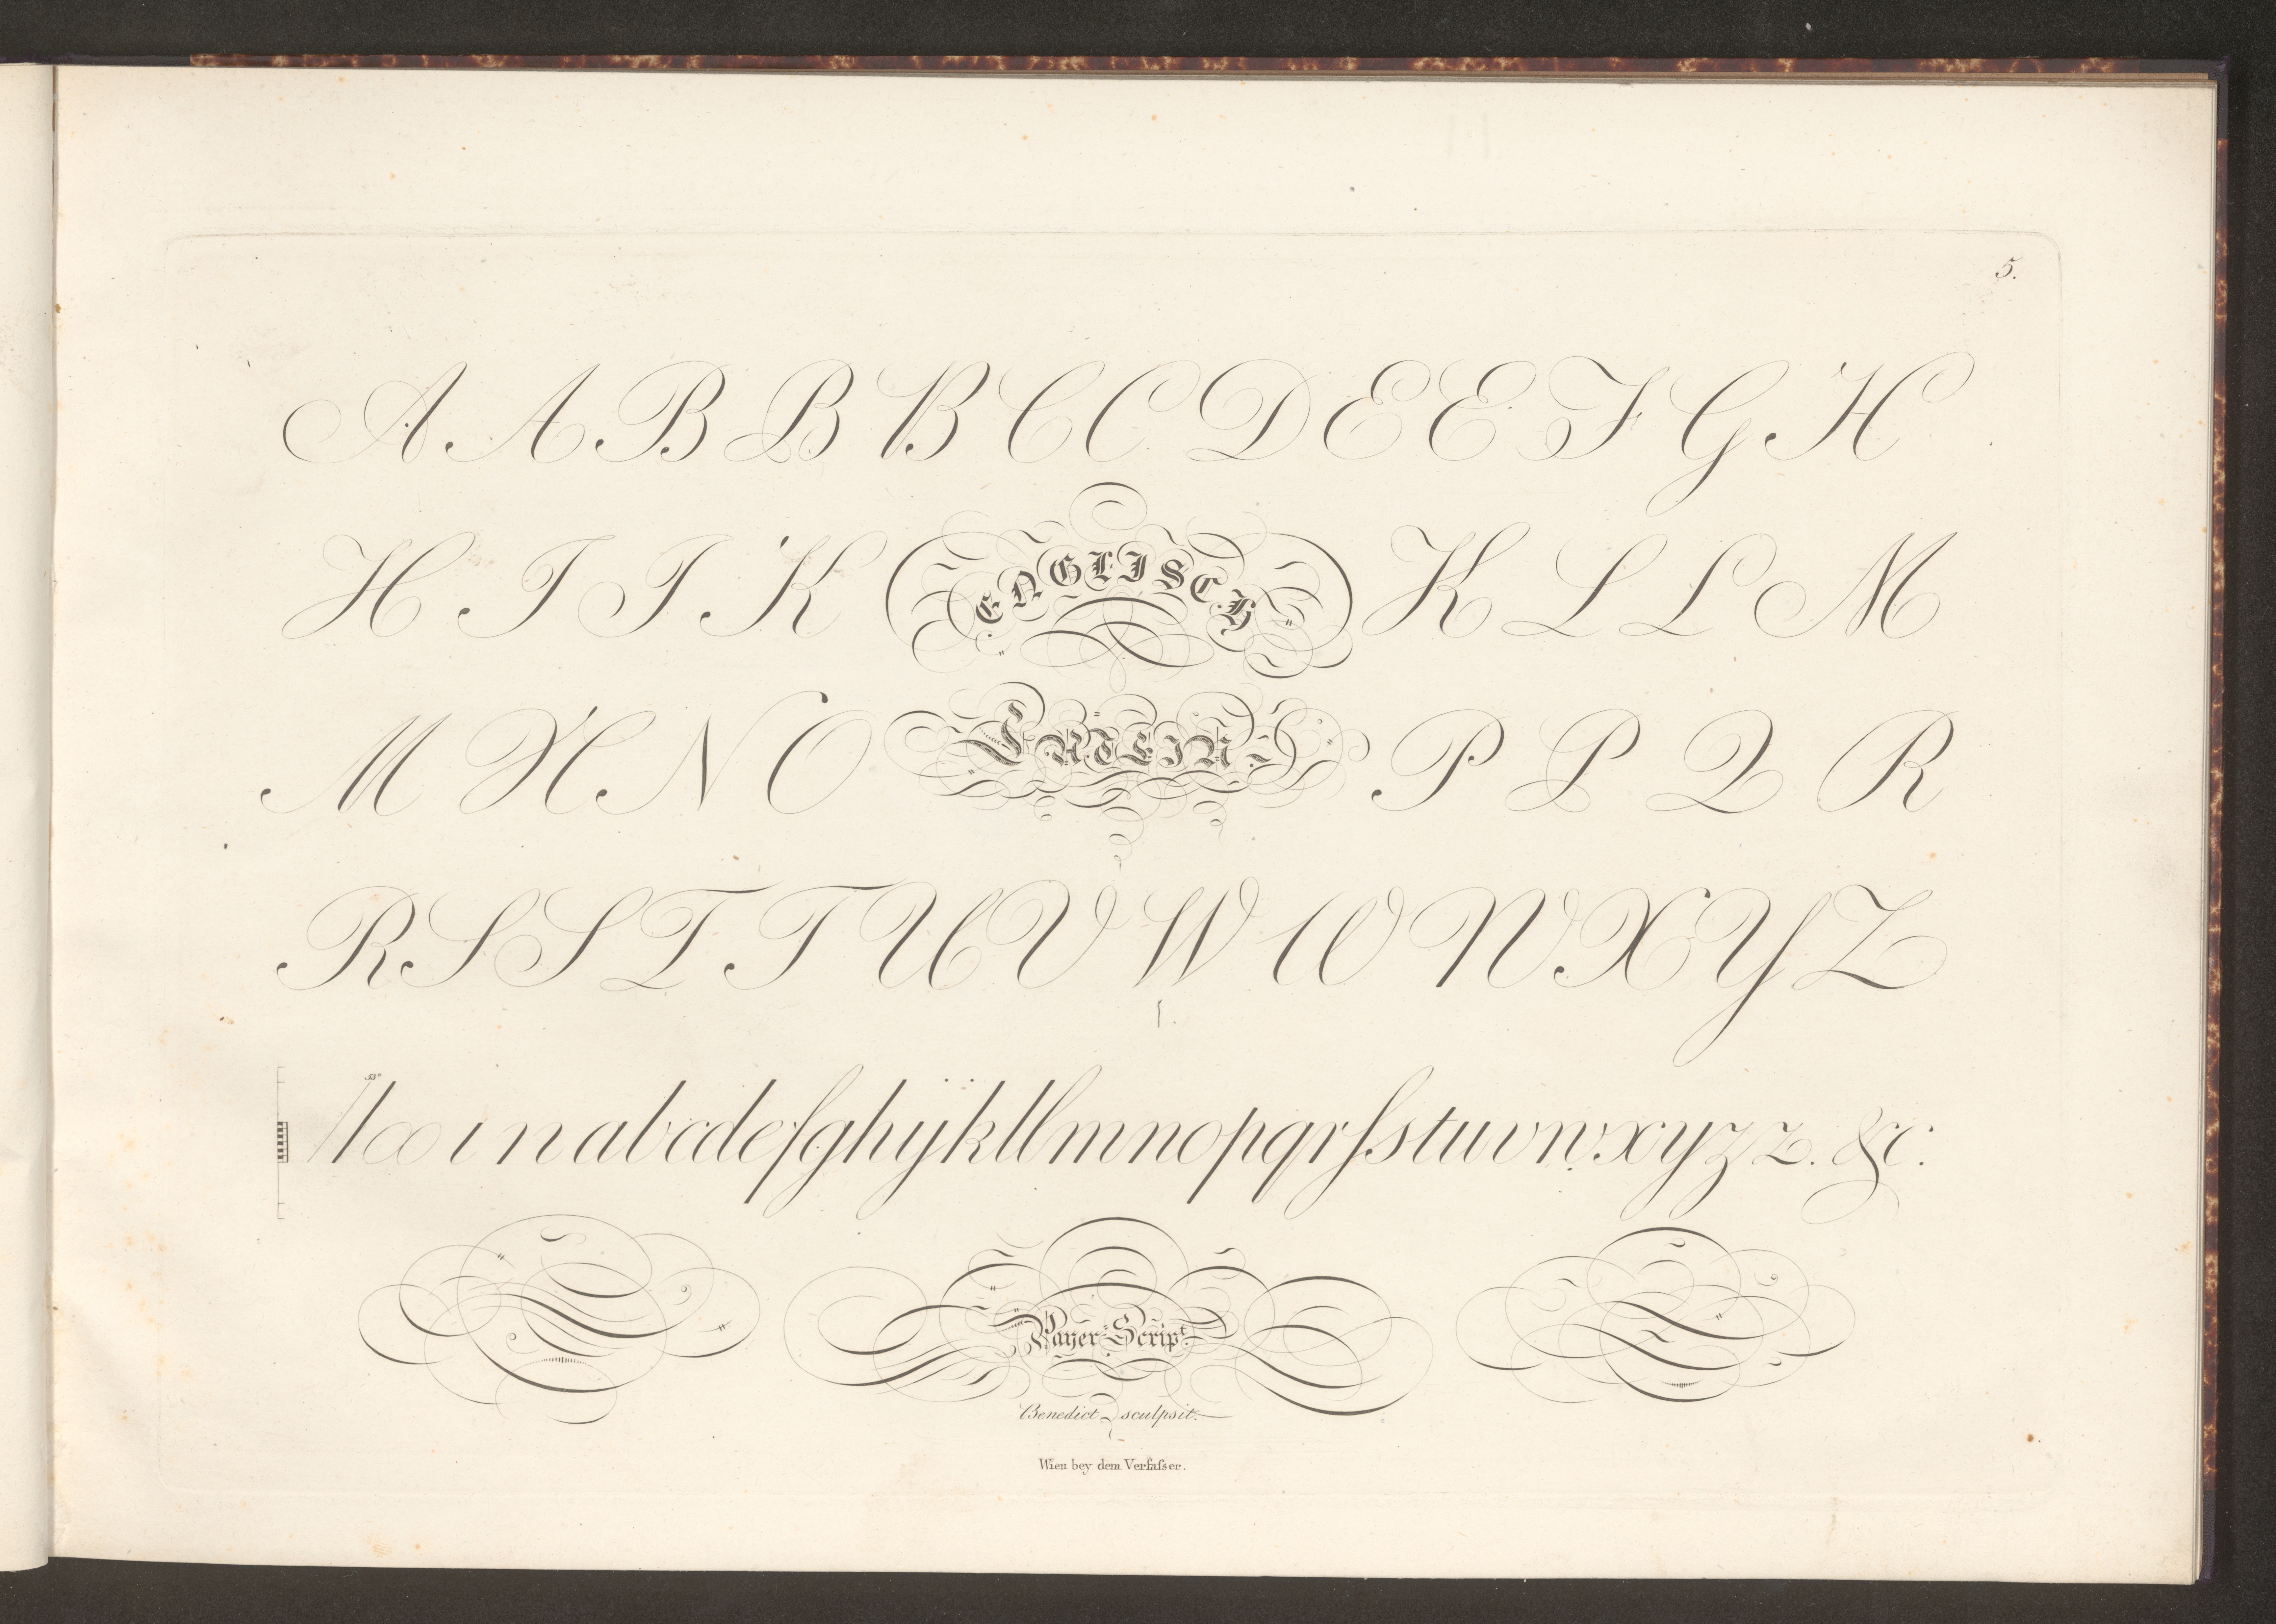 5.
A A B B B C C D E E F G H
H I I K ENGLISCH K L L M
M N N O LATEIN P P Q R
R S S T T U V W W W X Y Z
55°
ı n a b c d e f g h ij k l l m n o p q r ſ s t u v w x y z z. &c.
Payer Script.
Benedict sculpsit.
Wien bey dem Verfaſser.